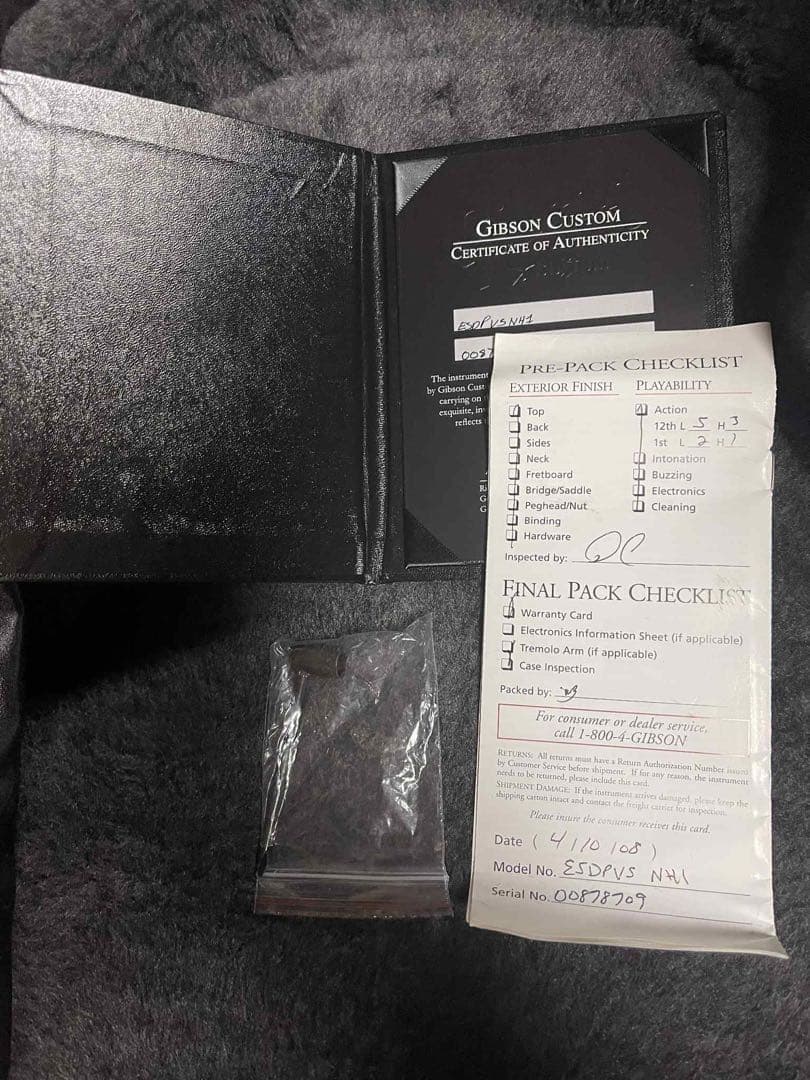 GIBSON CUSTOM
CERTIFICATE OF AUTHENTICITY
ESDPVSNH1
0087
The instrument
by Gibson Cust
carrying on
exquisite, in
reflects
G
G
PRE-PACK CHECKLIST
EXTERIOR FINISH
Top
Back
Sides
Neck
Fretboard
Bridge/Saddle
Peghead/Nut
Binding
Hardware
PLAYABILITY
Action
12th L 5 H 3
1st L 2 H 1
Intonation
Buzzing
Electronics
Cleaning
Inspected by:
FINAL PACK CHECKLIST
Warranty Card
Electronics Information Sheet (if applicable)
Tremolo Arm (if applicable)
Case Inspection
Packed by:
For consumer or dealer service,
call 1-800-4-GIBSON
RETURNS: All returns must have a Return Authorization Number issued
by Customer Service before shipment. If for any reason, the instrument
needs to be returned, please include this card.
SHIPMENT DAMAGE: If the instrument arrives damaged, please keep the
shipping carton intact and contact the freight carrier for inspection.
Please insure the consumer receives this card.
Date ( 4/10/08 )
Model No. ESDPVS NH1
Serial No. 00878709